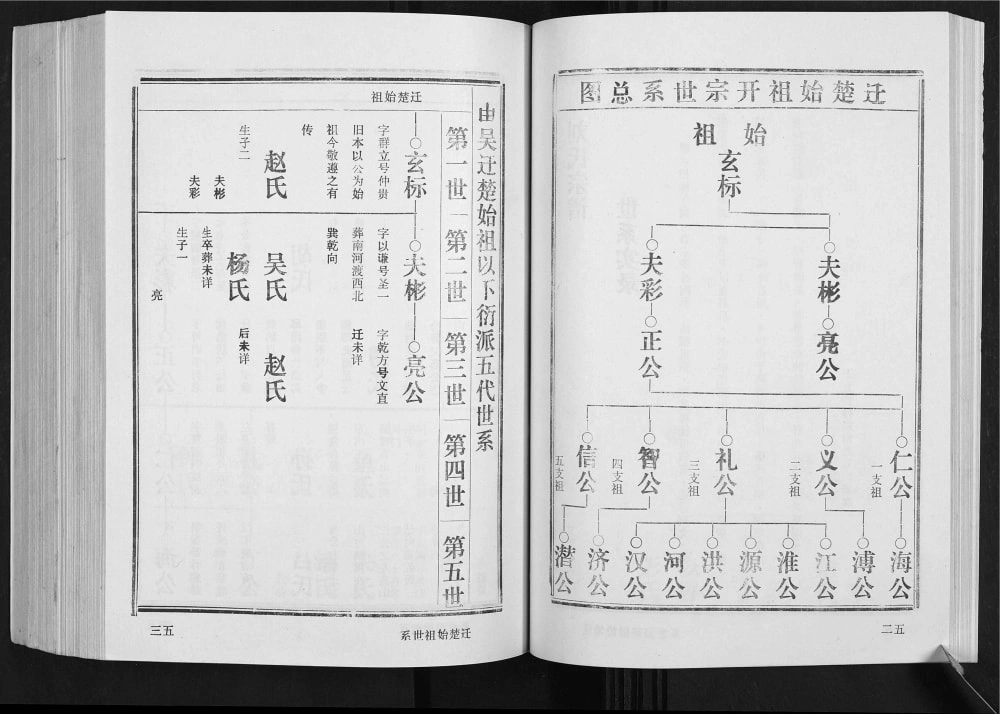 迁楚始祖开宗世系总图
始祖
玄标
夫彬
夫彩
亮公
正公
仁公
一支祖
义公
二支祖
礼公
三支祖
智公
四支祖
信公
五支祖
海公
溥公
江公
淮公
源公
洪公
河公
汉公
济公
潜公
五二
由吴迁楚始祖以下衍派五代世系
第一世
第二世
第三世
第四世
第五世
迁楚始祖
玄标
字群立号仲贵
旧本以公为始
祖今敬遵之有
传
赵氏
生子二
夫彬
夫彩
夫彬
字以谦号圣一
葬南河渡西北
巽乾向
吴氏
杨氏
生卒葬未详
生子一
亮
亮公
字乾方号文直
迁未详
赵氏
后未详
迁楚始祖世系
五三